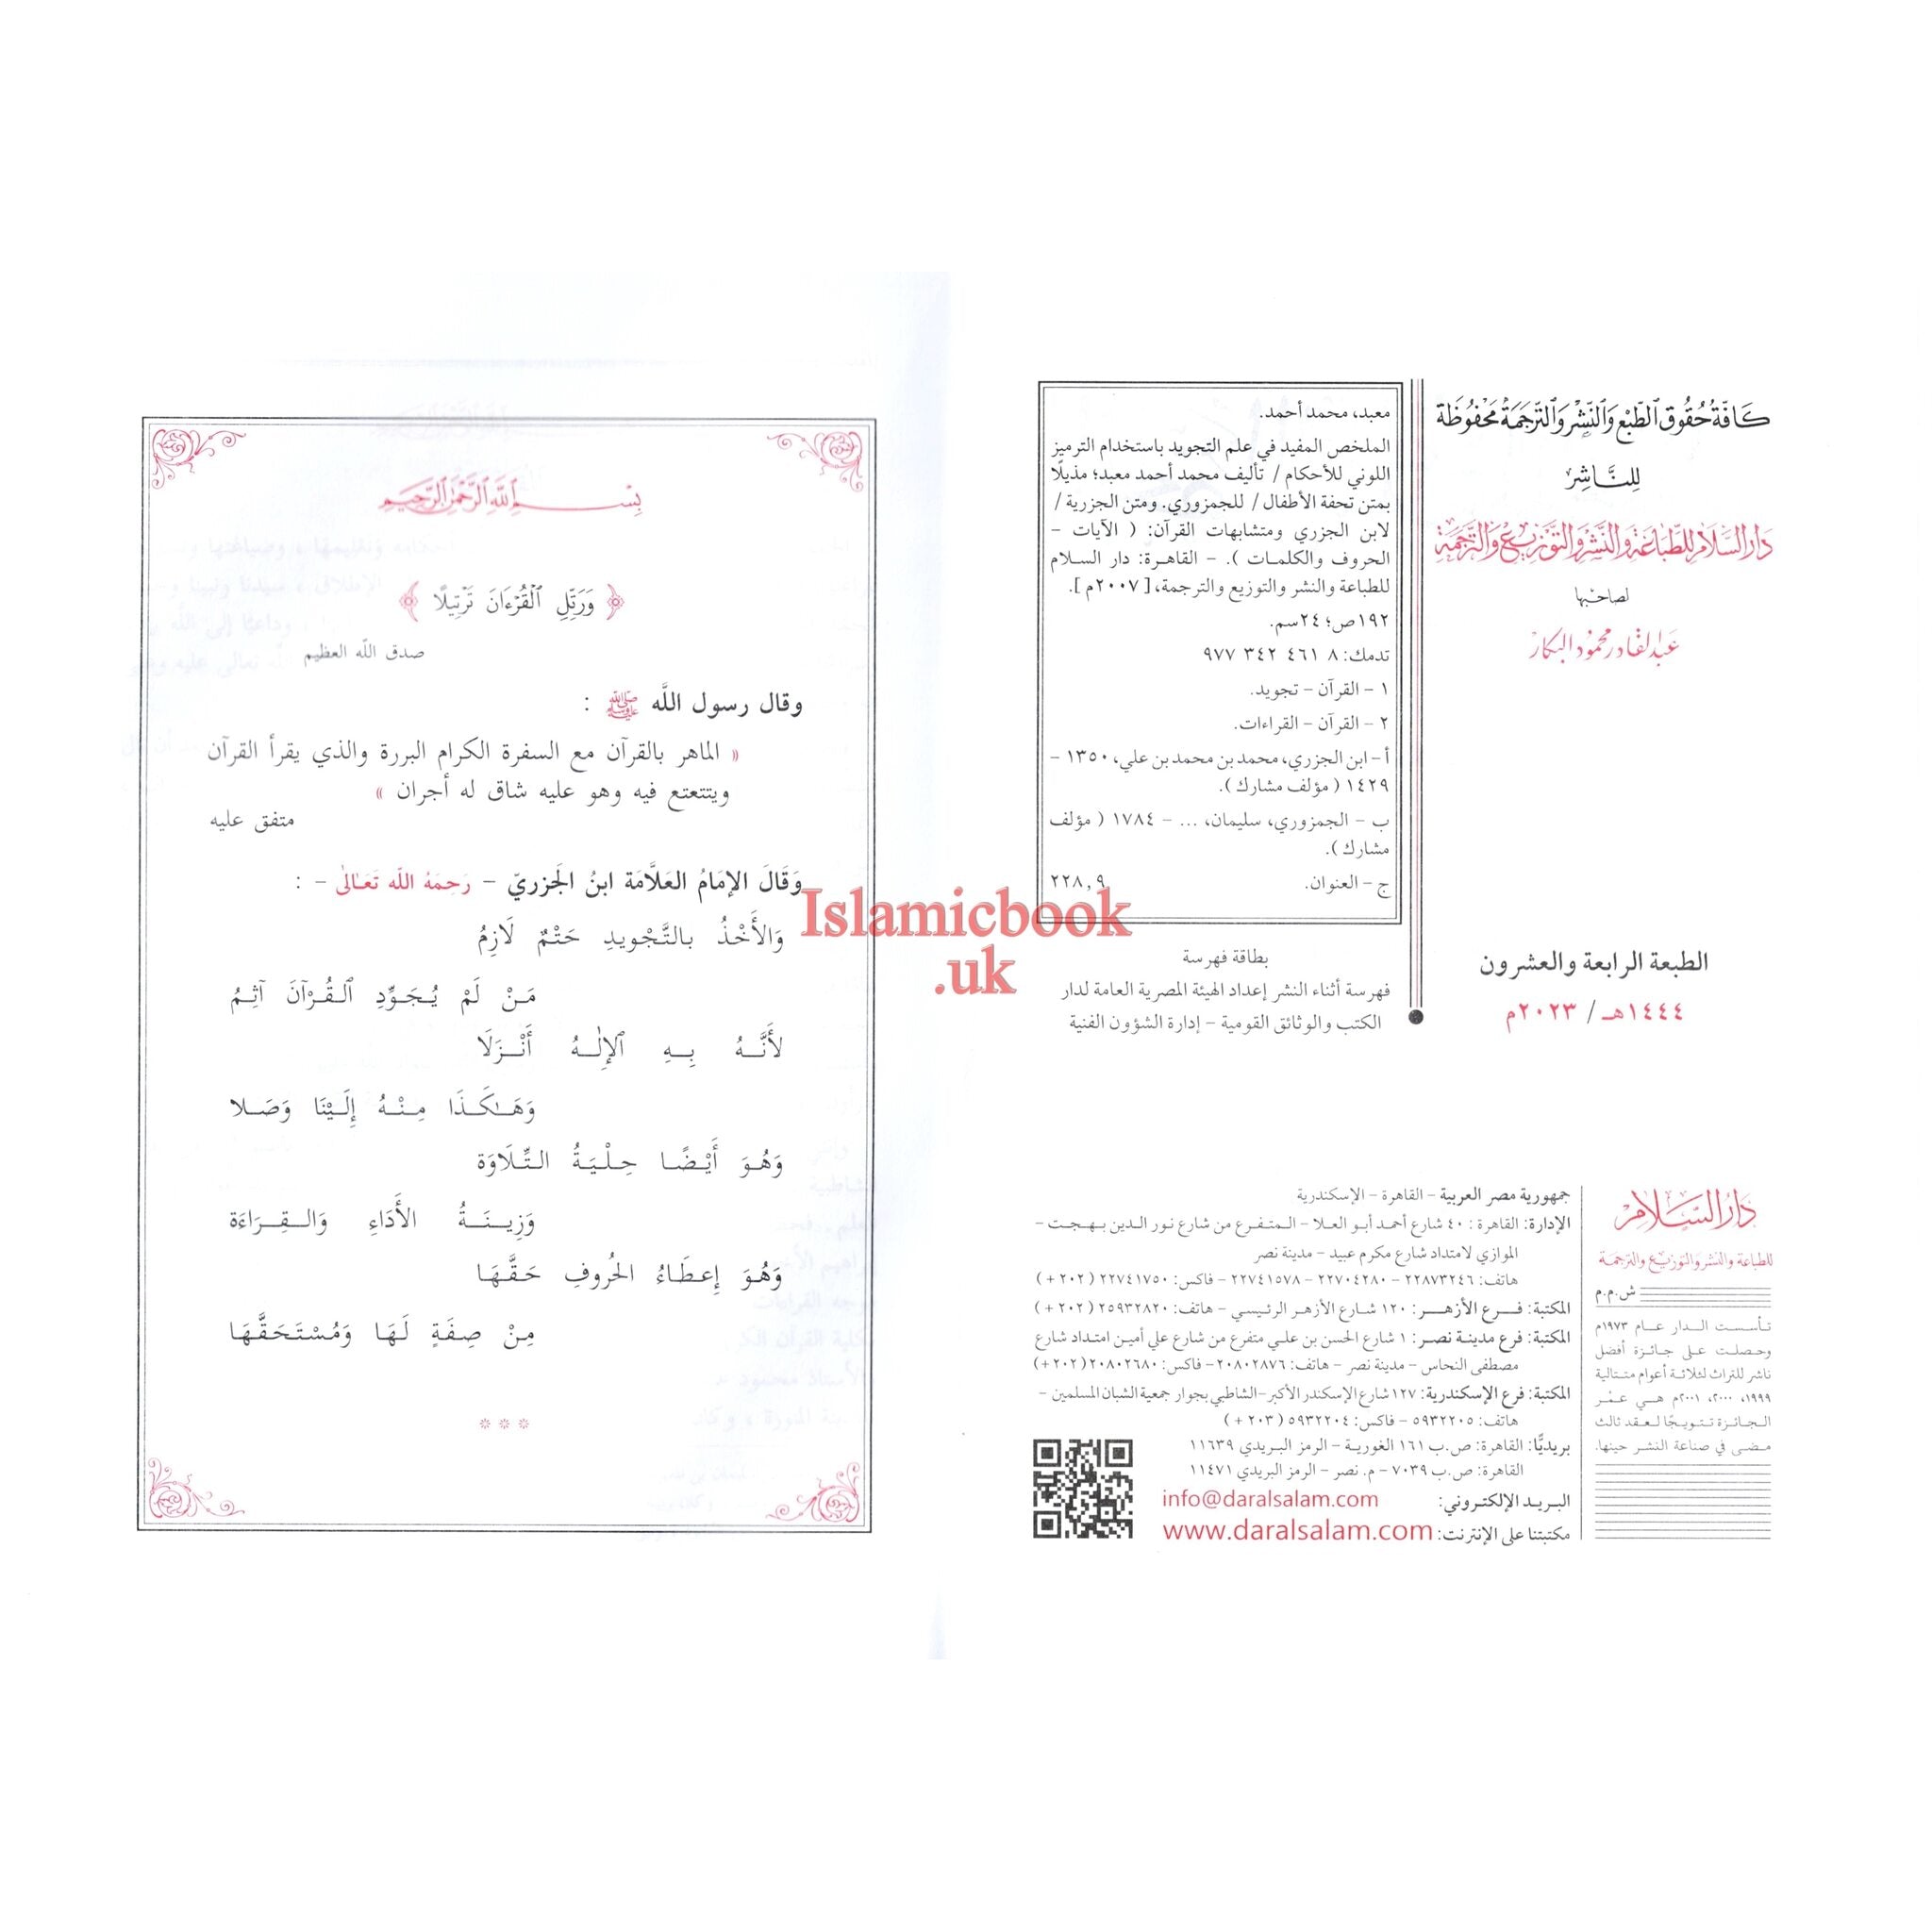 كَافَّةُ حُقُوقِ الطَّبْعِ وَالنَّشْرِ وَالتَّرْجَمَةِ مَحْفُوظَة
لِلنَّاشِرْ
دَارُ السَّلَامِ لِلطِّبَاعَةِ وَالنَّشْرِ وَالتَّوْزِيعِ وَالتَّرْجَمَةِ
لصاحبها
عبدالقادر محمود البكار
معبد، محمد أحمد.
الملخص المفيد في علم التجويد باستخدام الترميز
اللوني للأحكام / تأليف محمد أحمد معبد؛ مذيلًا
بمتن تحفة الأطفال / للجمزوري. ومتن الجزرية /
لابن الجزري ومتشابهات القرآن: ( الآيات -
الحروف والكلمات ). - القاهرة: دار السلام
للطباعة والنشر والتوزيع والترجمة، [ ٢٠٠٧م ].
١٩٢ص؛ ٢٤سم.
تدمك: ٨ ٤٦١ ٣٤٢ ٩٧٧
١ - القرآن - تجويد.
٢ - القرآن - القراءات.
أ - ابن الجزري، محمد بن محمد بن علي، ١٣٥٠ -
١٤٢٩ ( مؤلف مشارك ).
ب - الجمزوري، سليمان، ... - ١٧٨٤ ( مؤلف
مشارك ).
ج - العنوان. ٢٢٨,٩
بطاقة فهرسة
فهرسة أثناء النشر إعداد الهيئة المصرية العامة لدار
الكتب والوثائق القومية - إدارة الشؤون الفنية
الطبعة الرابعة والعشرون
١٤٤٤هـ / ٢٠٢٣م
دار السلام
للطباعة والنشر والتوزيع والترجمة
ش.م.م
تأسست الدار عام ١٩٧٣م
وحصلت على جائزة أفضل
ناشر للتراث لثلاثة أعوام متتالية
١٩٩٩، ٢٠٠٠، ٢٠٠١م هي عمر
الجائزة تتويجًا لعقد ثالث
مضى في صناعة النشر حينها.
جمهورية مصر العربية - القاهرة - الإسكندرية
الإدارة: القاهرة : ٤٠ شارع أحمد أبو العلا - المتفرع من شارع نور الدين بهجت -
الموازي لامتداد شارع مكرم عبيد - مدينة نصر
هاتف: ٢٢٨٧٣٢٤٦ - ٢٢٧٠٤٢٨٠ - ٢٢٧٤١٥٧٨ - فاكس: ٢٢٧٤١٧٥٠ (٢٠٢ +)
المكتبة: فرع الأزهر : ١٢٠ شارع الأزهر الرئيسي - هاتف: ٢٥٩٣٢٨٢٠ (٢٠٢ +)
المكتبة: فرع مدينة نصر : ١ شارع الحسن بن علي متفرع من شارع علي أمين امتداد شارع
مصطفى النحاس - مدينة نصر - هاتف: ٢٠٨٠٢٨٧٦ - فاكس: ٢٠٨٠٢٦٨٠ (٢٠٢+)
المكتبة: فرع الإسكندرية: ١٢٧ شارع الإسكندر الأكبر-الشاطبي بجوار جمعية الشبان المسلمين -
هاتف: ٥٩٣٢٢٠٥ - فاكس: ٥٩٣٢٢٠٤ (٢٠٣ +)
بريديًّا: القاهرة: ص.ب ١٦١ الغورية - الرمز البريدي ١١٦٣٩
القاهرة: ص.ب ٧٠٣٩ - م. نصر - الرمز البريدي ١١٤٧١
البريد الإلكتروني: info@daralsalam.com
مكتبتنا على الإنترنت: www.daralsalam.com
Islamicbook
.uk
بِسْمِ اللَّهِ الرَّحْمَٰنِ الرَّحِيمِ
﴿ وَرَتِّلِ ٱلْقُرْءَانَ تَرْتِيلًا ﴾
صدق اللَّه العظيم
وقال رسول اللَّه ﷺ :
« الماهر بالقرآن مع السفرة الكرام البررة والذي يقرأ القرآن
ويتتعتع فيه وهو عليه شاق له أجران »
متفق عليه
وَقَالَ الإمَامُ العَلاَّمَة ابنُ الجَزريّ - رَحِمَهُ اللَّه تَعَالى - :
وَالأَخْذُ بالتَّجْويدِ حَتْمٌ لَازِمُ
مَنْ لَمْ يُجَوِّدِ القُرْآنَ آثِمُ
لأَنَّهُ بِهِ الإلٰهُ أَنْزَلَا
وَهَٰكَذَا مِنْهُ إلَيْنَا وَصَلا
وَهُوَ أَيْضًا حِلْيَةُ التِّلَاوَة
وَزِينَةُ الأَدَاءِ وَالقِرَاءَة
وَهُوَ إعطَاءُ الحُروفِ حَقَّهَا
مِنْ صِفَةٍ لَهَا وَمُسْتَحَقَّهَا